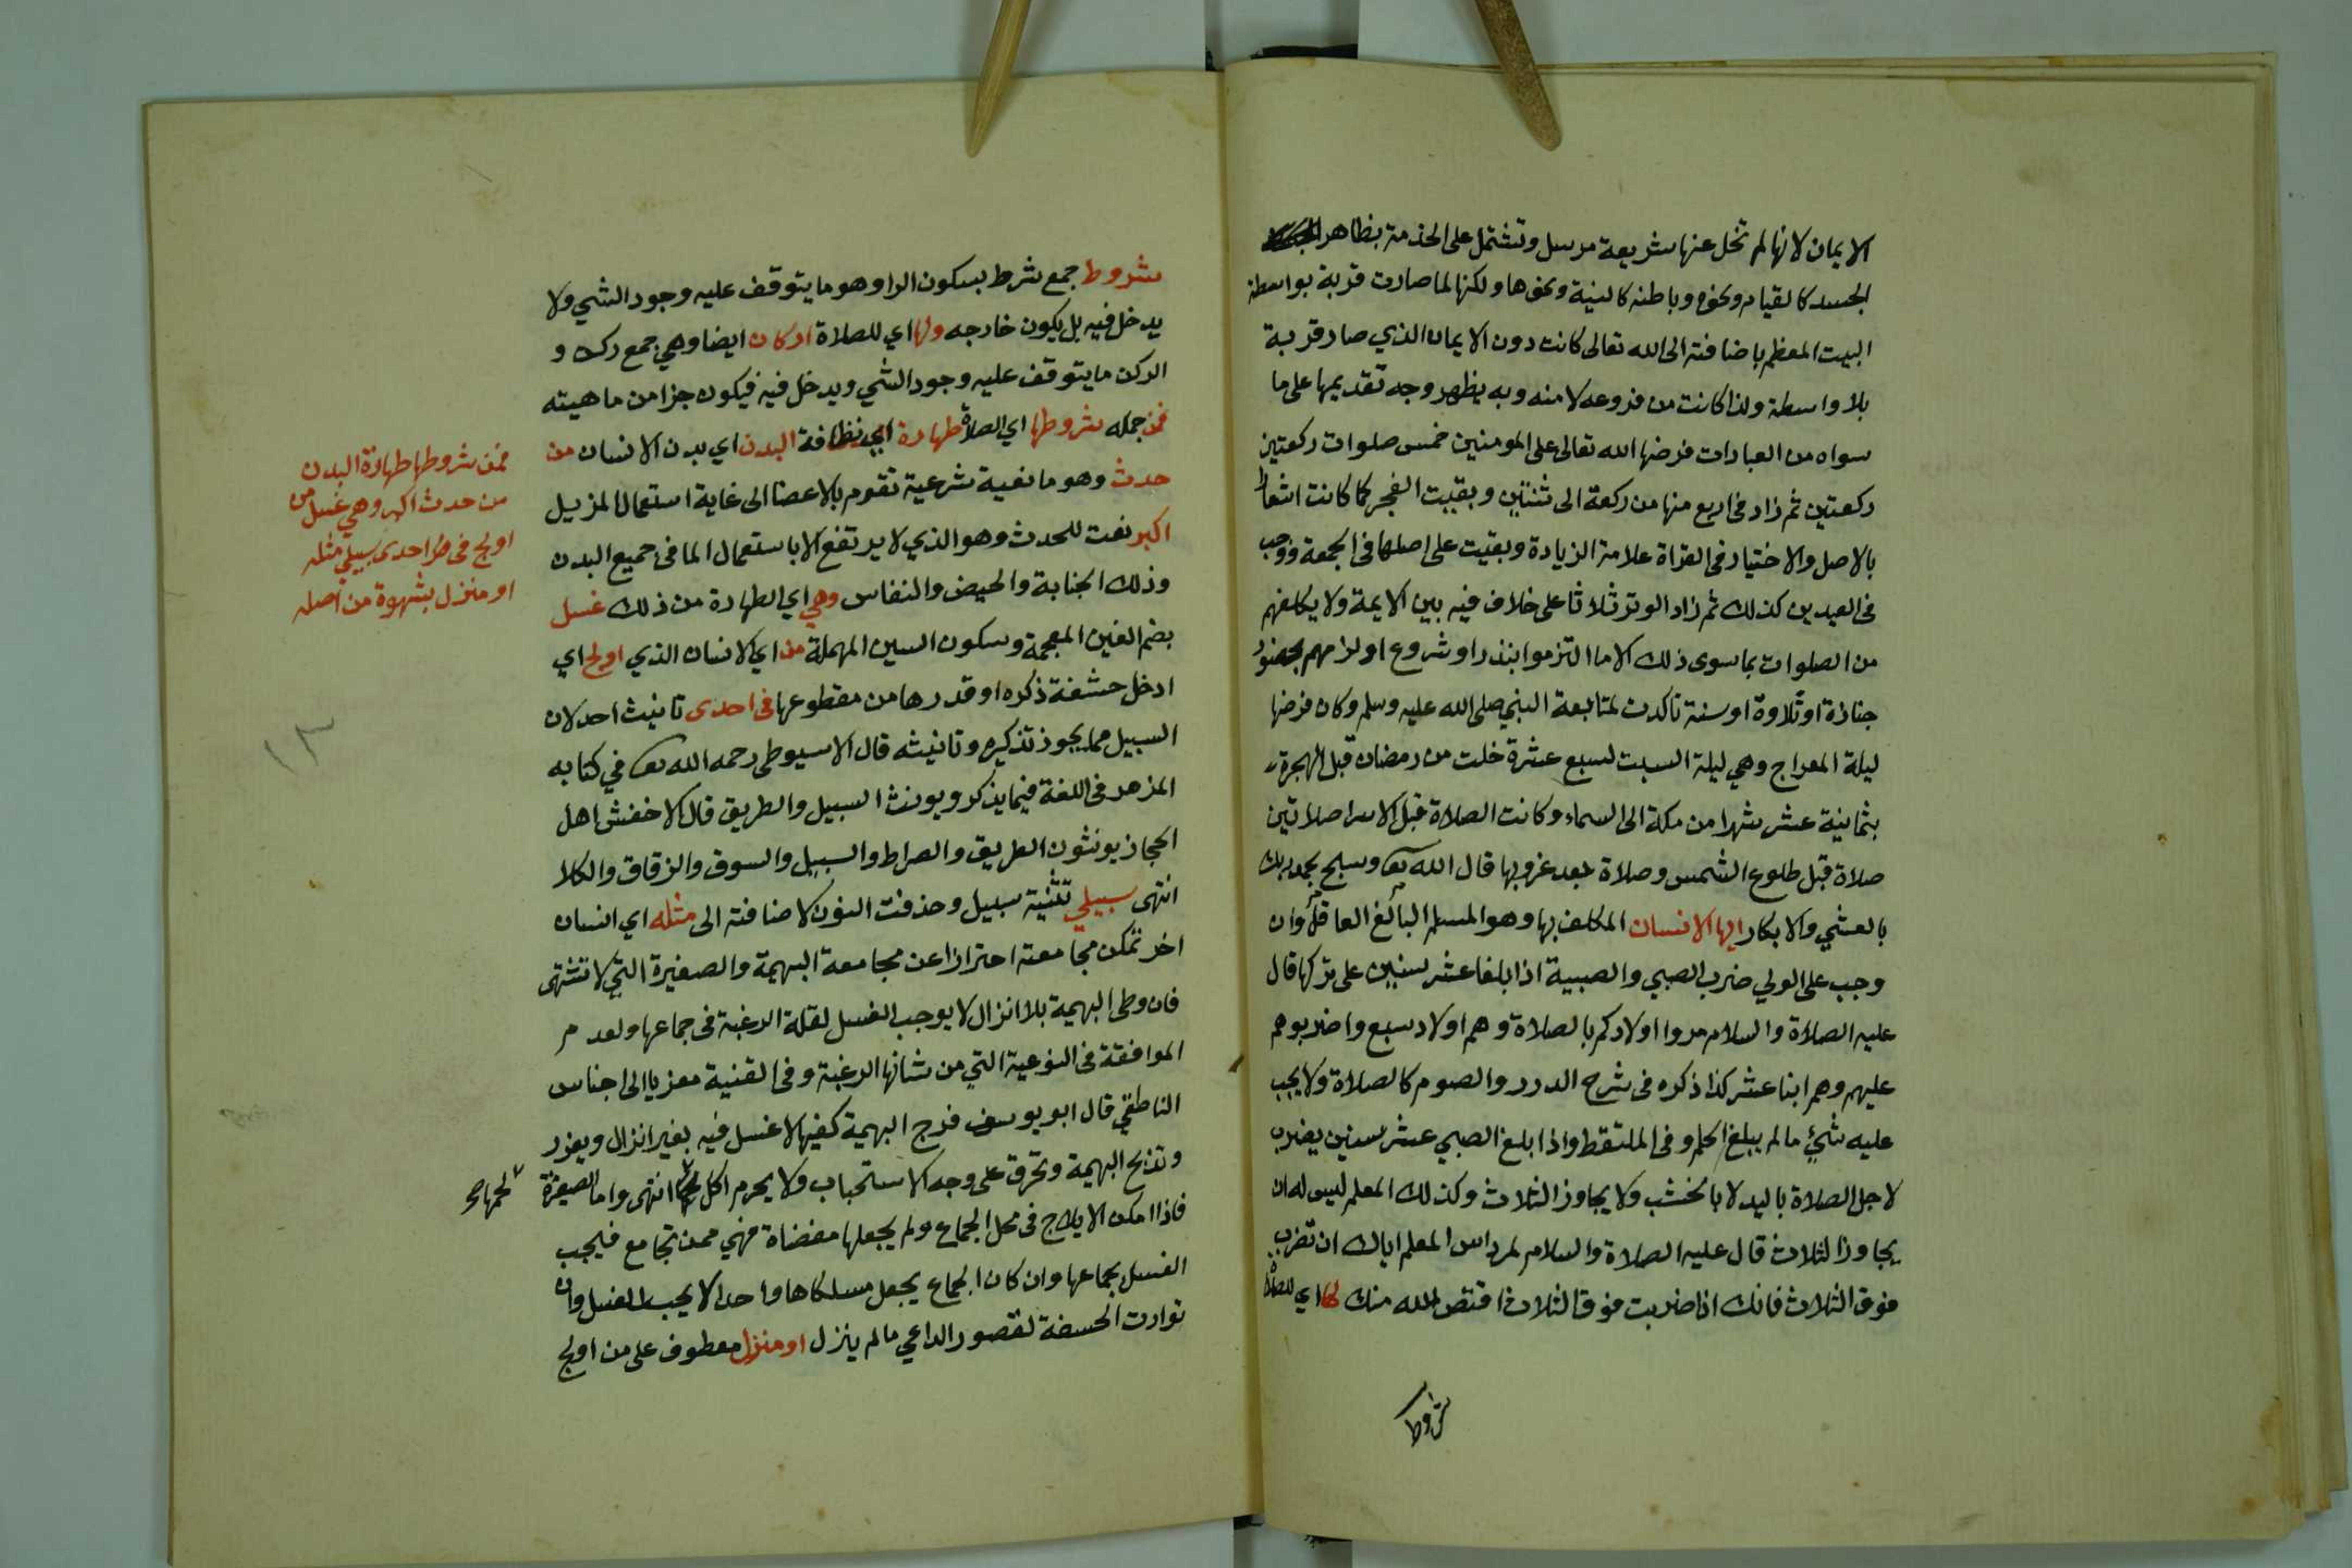 الايمان لانها لم تخل عنها شريعة مرسل وتشتمل على الخدمة بظاهر
الجسد كالقيام ونحوه وباطنه كالنية ونحوها ولكنها لما صارت قربة بواسطة
البيت المعظم باضافته الى الله تعالى كانت دون الايمان الذي صار قربة
بلا واسطة ولذا كانت من فروعه لا منه وبه يظهر وجه تقديمها على ما
سواه من العبادات فرضها الله تعالى على المومنين خمس صلوات ركعتين
ركعتين ثم زاد في اربع منها من ركعة الى ثنتين وبقيت الفجر كما كانت اشعارا
بالاصل والاختيار في القراة علامة الزيادة وبقيت على اصلها في الجمعة ووجب
في العيدين كذلك ثم زاد الوتر ثلاثا على خلاف فيه بين الايمة ولا يكلفهم
من الصلوات بما سوى ذلك الا ما التزموا بنذر او شروع او لزامهم بحضور
جنازة او تلاوة او سنة تاكدت لمتابعة النبي صلى الله عليه وسلم وكان فرضها
ليلة المعراج وهي ليلة السبت لسبع عشرة خلت من رمضان قبل الهجرة
بثمانية عشر شهرا من مكة الى السماء وكانت الصلاة قبل الاسرا صلاتين
صلاة قبل طلوع الشمس وصلاة بعد غروبها قال الله تع وسبح بحمد ربك
بالعشي والابكار ايها الانسان المكلف بها وهو المسلم البالغ العاقل وان
وجب على الولي ضرب الصبي والصبية اذا بلغا عشر سنين على تركها قال
عليه الصلاة والسلام مروا اولادكم بالصلاة وهم اولاد سبع واضربوهم
عليهم وهم ابنا عشر كذا ذكره في شرح الدرر والصوم كالصلاة ولا يجب
عليه شئ ما لم يبلغ الحلم وفي الملتقط واذا بلغ الصبي عشر سنين يضرب
لاجل الصلاة باليد لا بالخشب ولا يجاوز الثلاث وكذلك المعلم ليس له ان
يجاوز الثلاث قال عليه الصلاة والسلام لمرداس المعلم اياك ان تضرب
فوق الثلاث فانك اذا ضربت فوق الثلاث اقتص الله منك لها اي للصلاة
شروط
شروط جمع شرط بسكون الرا وهو ما يتوقف عليه وجود الشي ولا
يدخل فيه بل يكون خارجه ولها اي للصلاة اركان ايضا وهي جمع ركن و
الركن ما يتوقف عليه وجود الشي ويدخل فيه فيكون جزا من ماهيته
فمن جمله شروطها اي الصلاة طهارة اي نظافة البدن اي بدن الانسان من
حدث وهو مانعية شرعية تقوم بالاعضا الى غاية استعمال المزيل
اكبر نعت للحدث وهو الذي لا يرتفع الا باستعمال الما في جميع البدن
وذلك الجنابة والحيض والنفاس وهي اي الطهارة من ذلك غسل
بضم الغين المعجمة وسكون السين المهملة من اي الانسان الذي اولج اي
ادخل حشفة ذكره او قدرها من مقطوعها في احدى تانيث احد لان
السبيل مما يجوز تذكيره وتانيثه قال الاسيوطي رحمه الله تع في كتابه
المزهر في اللغة فيما يذكر ويونث السبيل والطريق قال الاخفش اهل
الحجاز يونثون الطريق والصراط والسبيل والسوق والزقاق والكلا
انتهى سبيلي تثنية سبيل وحذفت النون لاضافته الى مثله اي انسان
اخر تمكن مجامعته احترازا عن مجامعة البهيمة والصغيرة التي لا تشتهى
فان وطي البهيمة بلا انزال لا يوجب الغسل لقلة الرغبة في جماعها ولعدم
الموافقة في النوعية التي من شانها الرغبة وفي القنية معزيا الى اجناس
الناطفي قال ابو يوسف فرج البهيمة كفيها لا غسل فيه بغير انزال ويعزر
وتذبح البهيمة وتحرق على وجه الاستحباب ولا يحرم اكل انتهى واما الصغيرة
فاذا امكن الايلاج في محل الجماع ولم يجعلها مفضاة فهي ممن تجامع فيجب
الغسل بجماعها وان كان الجماع يجعل مسلكاها واحدا لا يجب الغسل وان
توارت الحشفة لقصور الداعي ما لم ينزل او منزل معطوف على من اولج
فمن شروطها طهارة البدن
من حدث اكبر وهي غسل من
اولج في احدى سبيلي مثله
او منزل بشهوة من اصله
لحمها صح
١٣